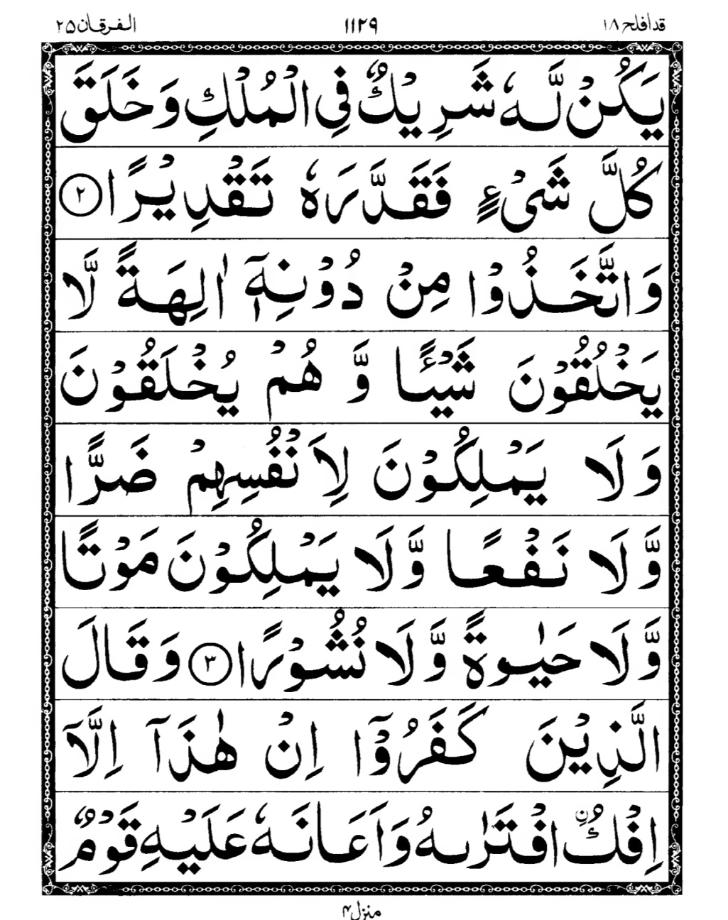 قدافلح ١٨ ١١٢٩ الفرقان ٢٥
يَكُنْ لَّهٗ شَرِيْكٌ فِى الْمُلْكِ وَخَلَقَ
كُلَّ شَىْءٍ فَقَدَّرَهٗ تَقْدِيْرًا ۝٢
وَاتَّخَذُوْا مِنْ دُوْنِهٖٓ اٰلِهَةً لَّا
يَخْلُقُوْنَ شَيْـًٔا وَّ هُمْ يُخْلَقُوْنَ
وَلَا يَمْلِكُوْنَ لِاَنْفُسِهِمْ ضَرًّا
وَّلَا نَفْعًا وَّلَا يَمْلِكُوْنَ مَوْتًا
وَّلَا حَيٰوةً وَّلَا نُشُوْرًا ۝٣ وَقَالَ
الَّذِيْنَ كَفَرُوْٓا اِنْ هٰذَآ اِلَّآ
اِفْكٌ ࣙافْتَرٰىهُ وَاَعَانَهٗ عَلَيْهِ قَوْمٌ
منزل ٤